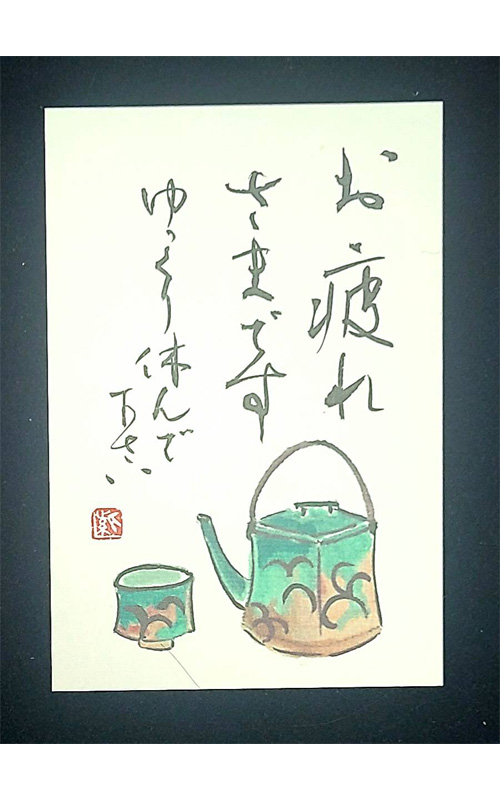 お疲れ
さまです
ゆっくり休んで
下さい